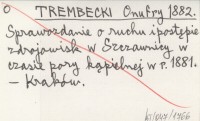 O TREMBECKI Onufry 1882.
Sprawozdanie o ruchu i postępie
zdrojowisk w Szczawnicy w
czasie pory kąpielnej w r. 1881.
— Kraków.